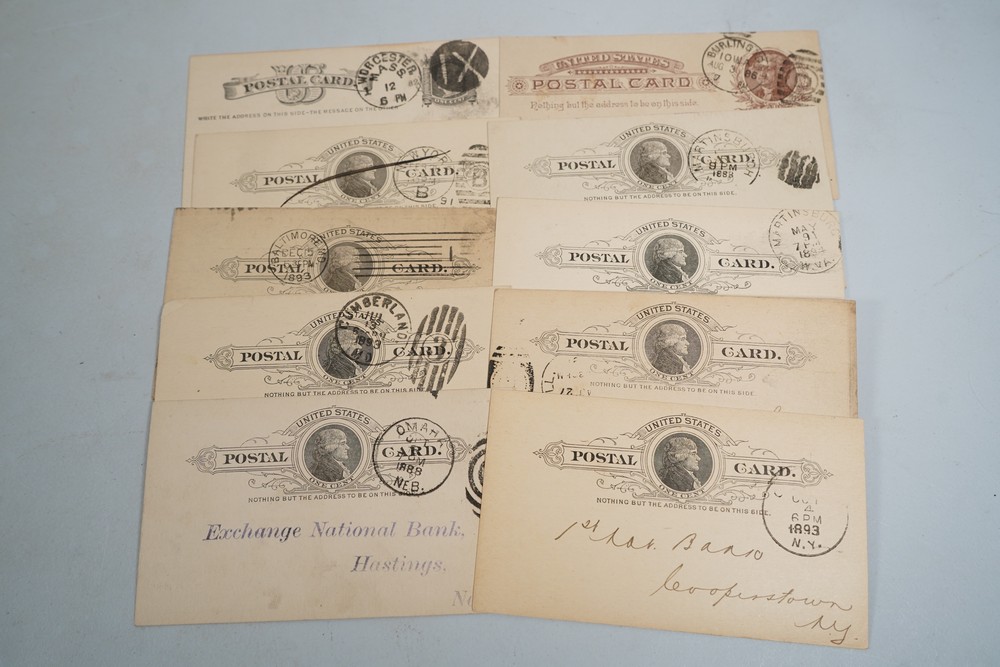 POSTAL CARD
WRITE THE ADDRESS ON THIS SIDE-THE MESSAGE ON THE
WORCESTER
MASS.
12
6 PM
UNITED STATES
POSTAL CARD
Nothing but the address to be on this side.
BURLING
IOW
AUG
3
86
UNITED STATES
POSTAL CARD.
ONE CENT
B
91
UNITED STATES
POSTAL CARD.
ONE CENT
NOTHING BUT THE ADDRESS TO BE ON THIS SIDE.
MARTINSBURGH
8 PM
1888
UNITED STATES
POSTAL CARD.
BALTIMORE
DEC 15
PM
1893
1
UNITED STATES
POSTAL CARD.
ONE CENT
MARTINSBURG
MAY
9
7 PM
1894
W.VA.
UNITED STATES
POSTAL CARD.
ONE CENT
NOTHING BUT THE ADDRESS TO BE ON THIS SIDE.
CUMBERLAND
JUL
13
1893
MD.
3
UNITED STATES
POSTAL CARD.
ONE CENT
NOTHING BUT THE ADDRESS TO BE ON THIS SIDE.
UNITED STATES
POSTAL CARD.
ONE CENT
NOTHING BUT THE ADDRESS TO BE ON THIS SIDE.
OMAHA
PM
1888
NEB.
Exchange National Bank,
Hastings,
UNITED STATES
POSTAL CARD.
ONE CENT
NOTHING BUT THE ADDRESS TO BE ON THIS SIDE.
OCT
4
6 PM
1893
N.Y.
1st Nat. Bank
Cooperstown
NY.